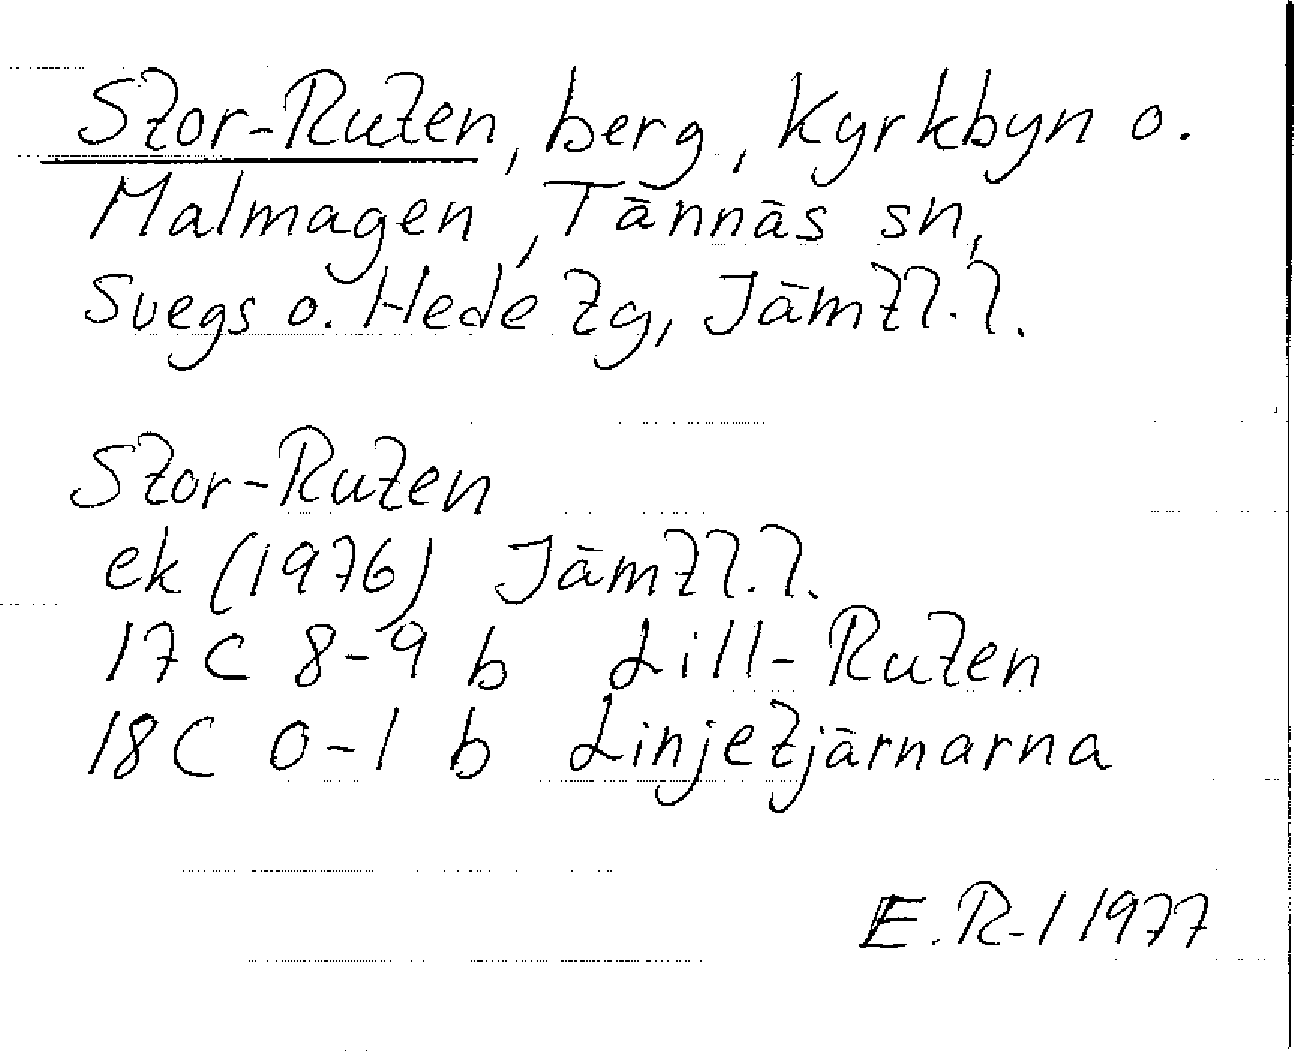 Stor-Ruten, berg, Kyrkbyn o.
Malmagen, Tännäs sn,
Svegs o. Hede tg, Jämtl. l.
Stor-Ruten
ek (1976) Jämtl. l.
17C 8-9 b Lill-Ruten
18C 0-1 b Linjetjärnarna
E.R-l 1977